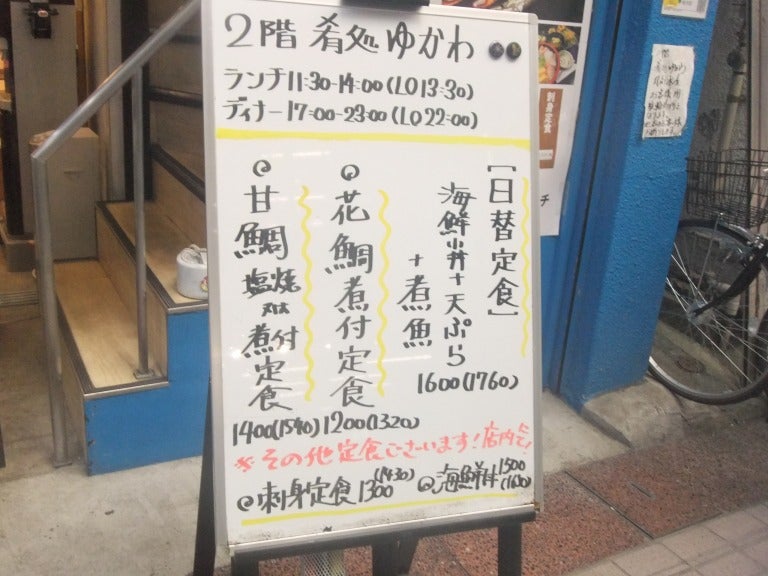 2階 肴処ゆかわ
ランチ11:30-14:00(LO13:30)
ディナー17:00-23:00(LO22:00)
[日替定食]
海鮮小丼+天ぷら
+煮魚
1600(1760)
花鯛煮付定食
1200(1320)
甘鯛塩焼又は煮付定食
1400(1540)
※その他定食ございます!店内にて!
刺身定食1300(1430)
海鮮丼1500
刺身定食